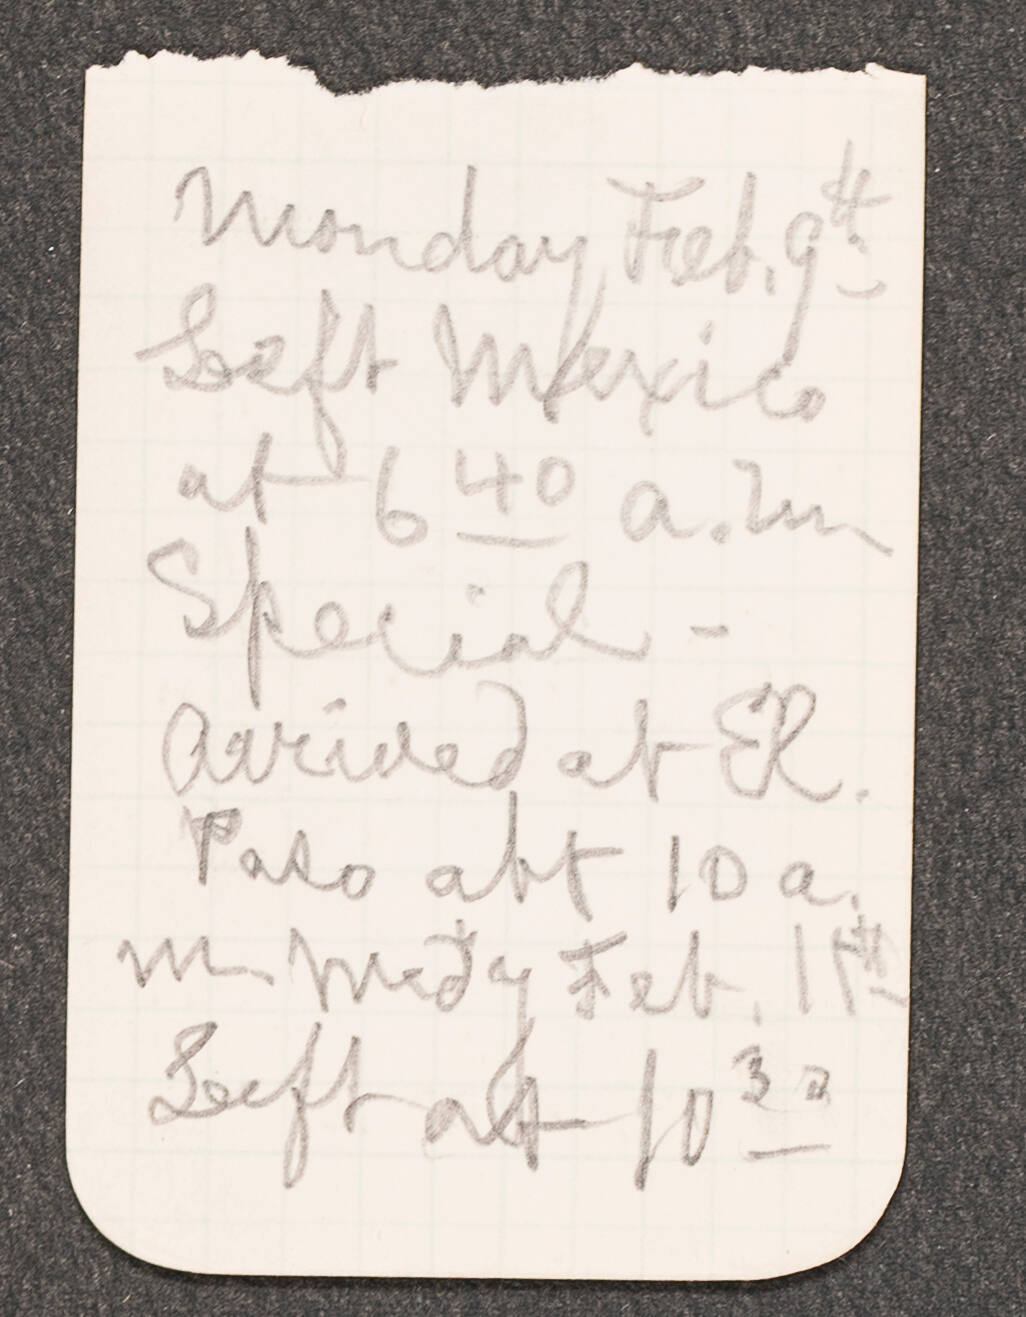 Monday Feb. 9th
Left Mexico
at 6 40 a.m
Special -
Arrived at El.
Paso abt 10 a.
m Wedy Feb. 11th
Left at 10 32